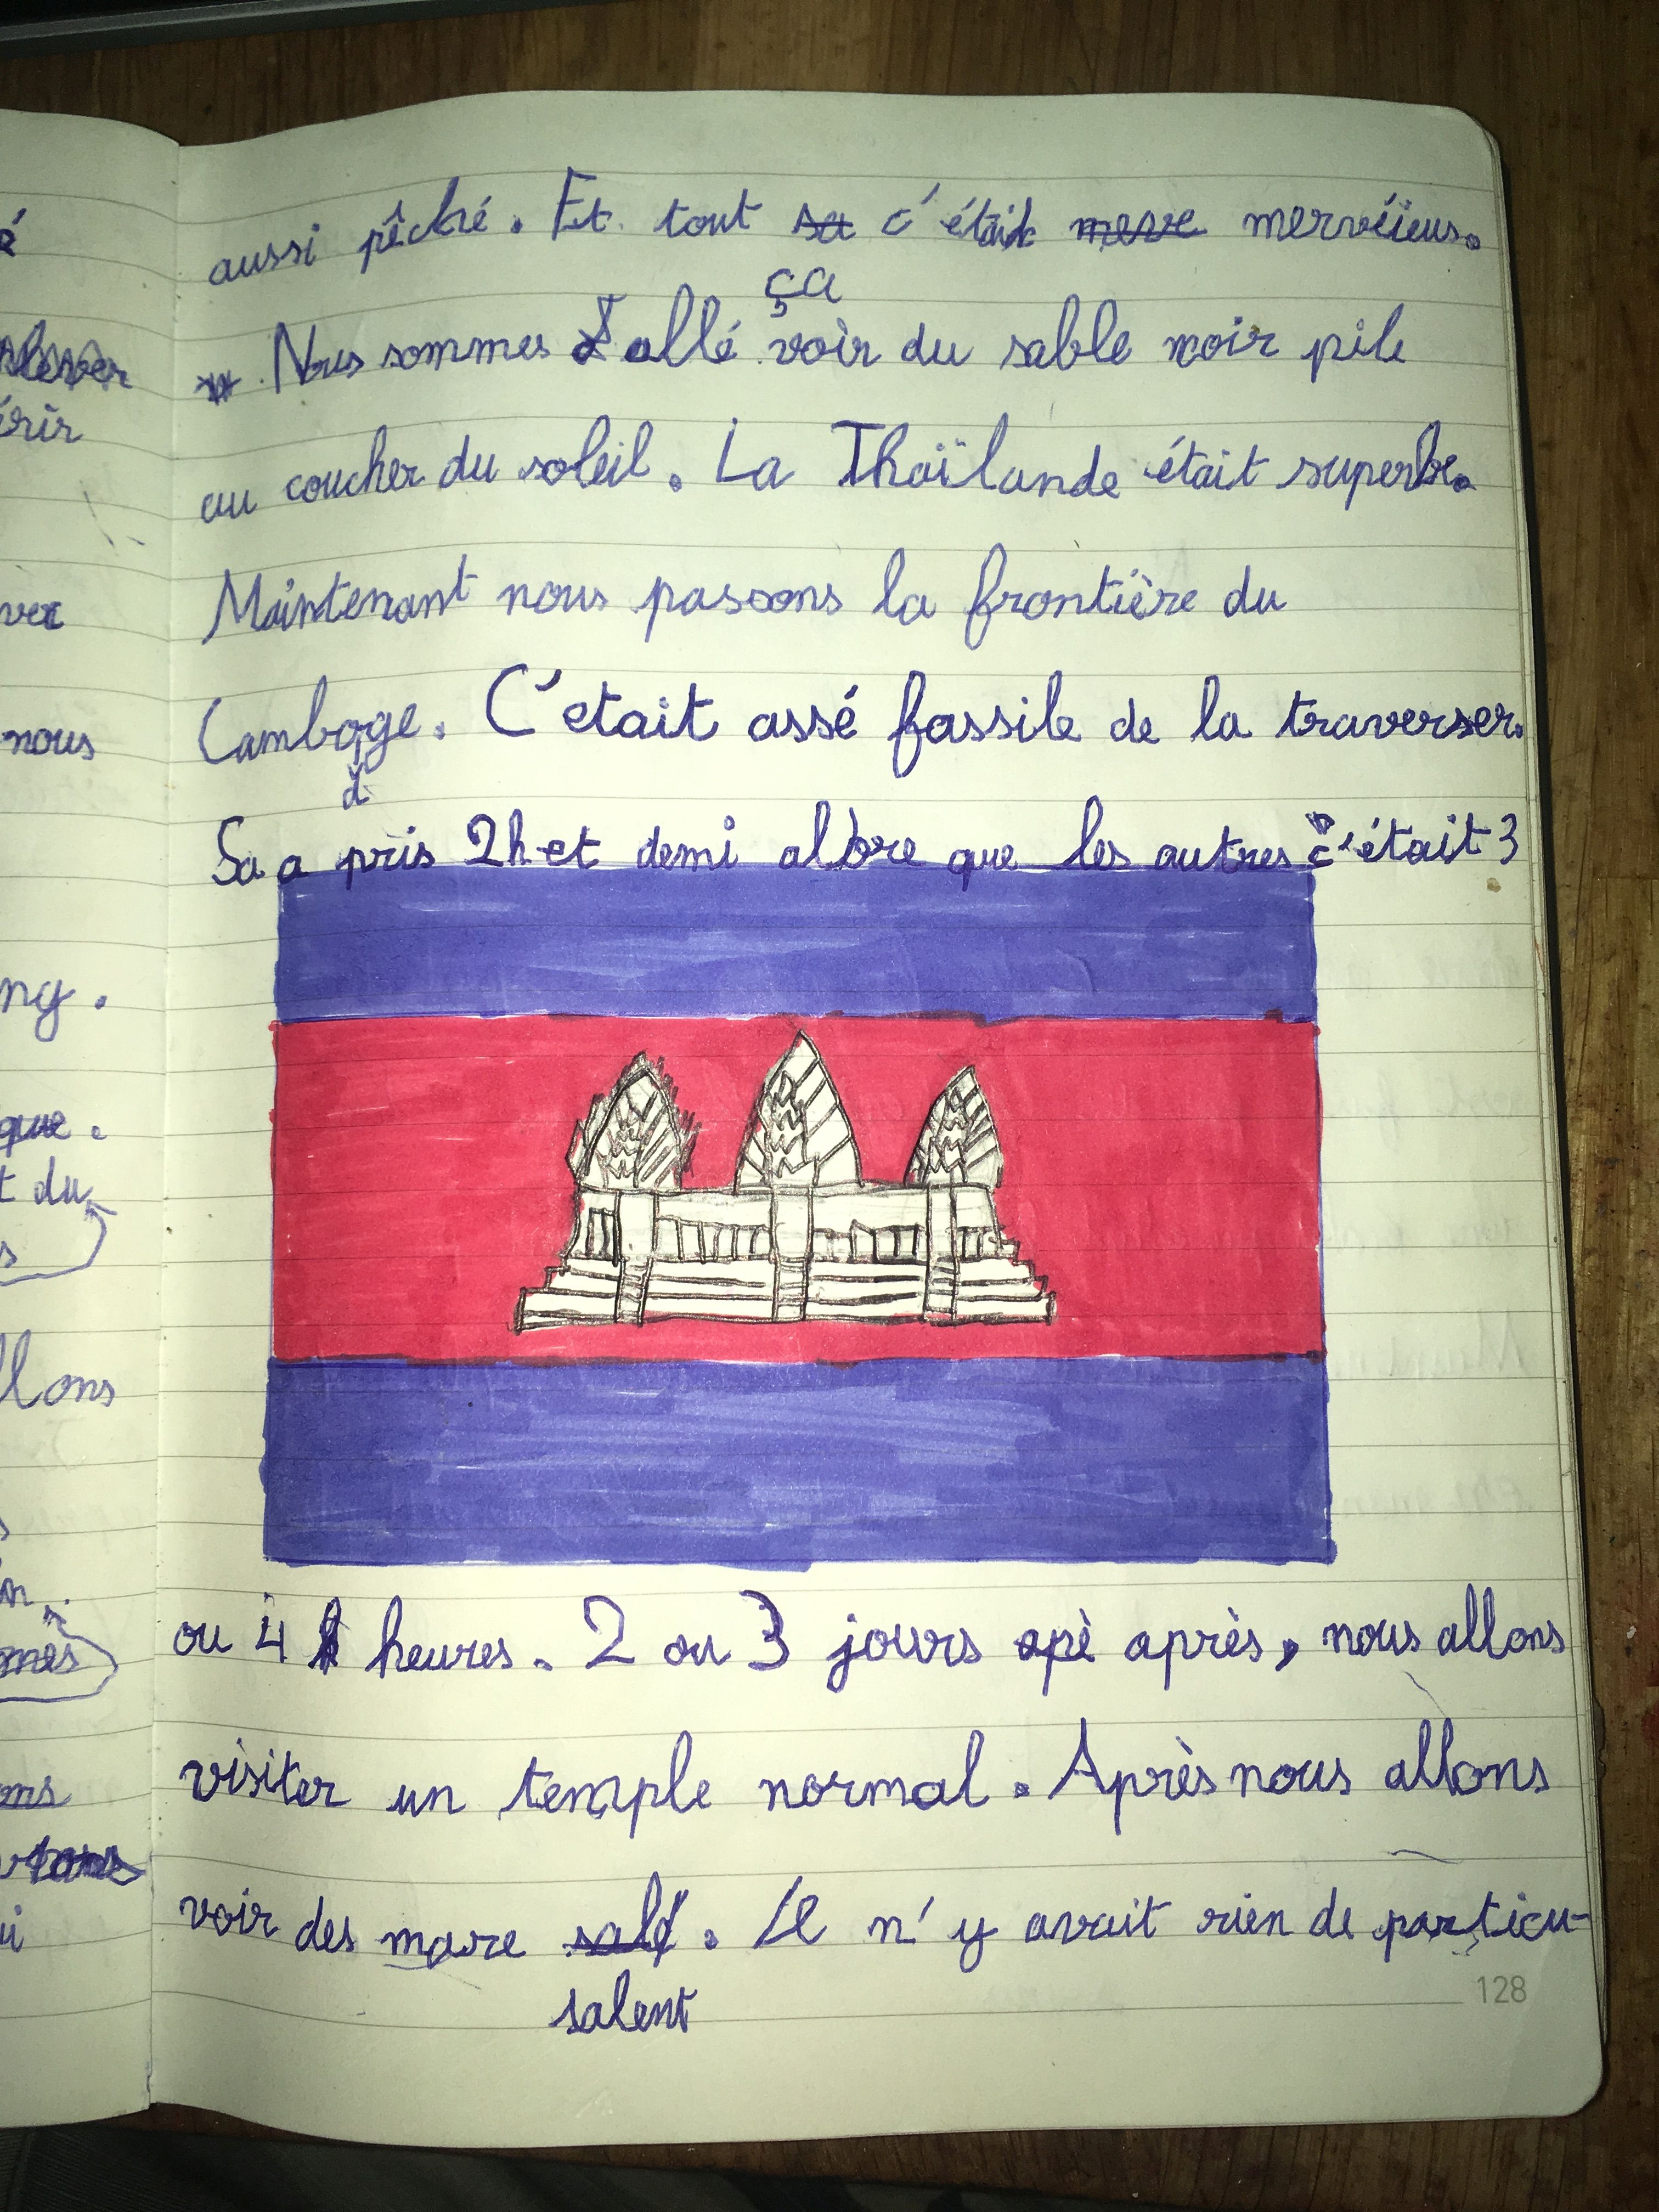 aussi pêché. Et tout sa c'était merve mervéieus.
ça
Nous sommes allé voir du sable noir pile
au coucher du soleil. La Thaïlande était superbe.
Maintenant nous passons la frontière du
Camboge. C'etait assé fassile de la traverser.
d
Sa a pris 2h et demi alore que les autres c'était 3
ou 4 heures. 2 ou 3 jours apè après, nous allons
visiter un temple normal. Après nous allons
voir des mare salé. Il n'y avait rien de particu-
salent
128
é
érir
vec
nous
ng.
que.
t du
s
llons
mes
ons
ui